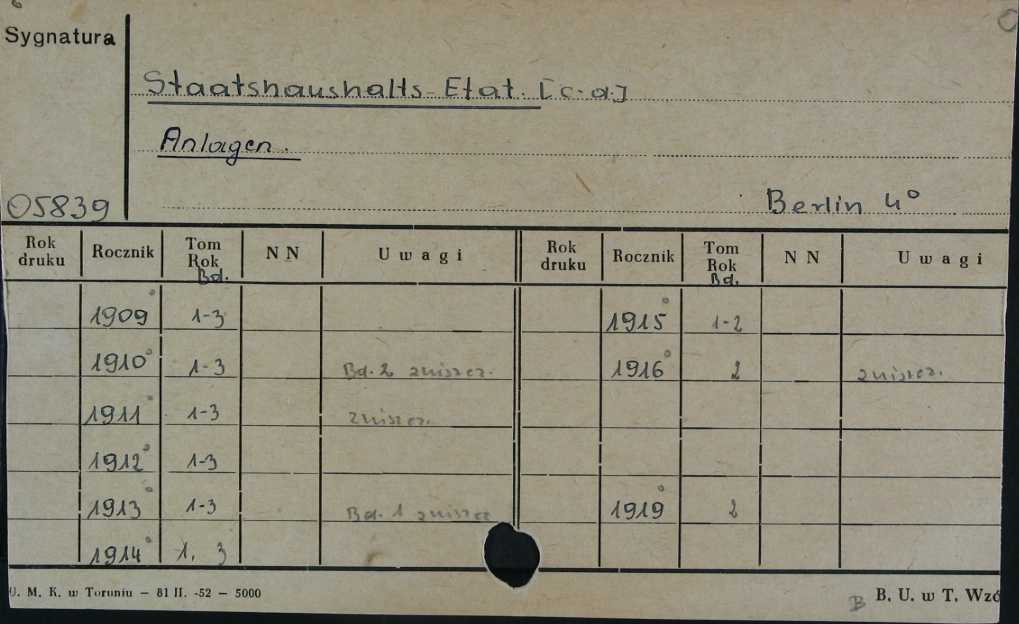 Sygnatura
Staatshaushalts-Etat. [c.d.]
Anlagen.
05839
Berlin 4°
Rok druku Rocznik Tom Rok Bd. NN Uwagi Rok druku Rocznik Tom Rok Bd. NN Uwagi
1909° 1-3 1915° 1-2
1910° 1-3 Bd. 2 zniszcz. 1916° 2 zniszcz.
1911° 1-3 zniszcz.
1912° 1-3
1913° 1-3 Bd. 1 zniszcz 1919° 2
1914° 1, 3
U. M. K. w Toruniu – 81 II. -52 – 5000
B B. U. w T. Wzó